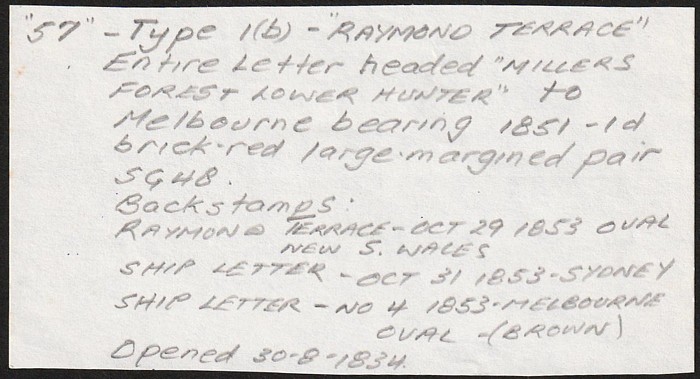 "57" - Type 1(b) - "RAYMOND TERRACE"
Entire Letter headed "MILLERS
FOREST LOWER HUNTER" to
Melbourne bearing 1851 - 1d
brick-red large-margined pair
SG48.
Backstamps:
RAYMOND TERRACE - OCT 29 1853 OVAL
NEW S. WALES
SHIP LETTER - OCT 31 1853 - SYDNEY
SHIP LETTER - NO 4 1853 - MELBOURNE
OVAL - (BROWN)
Opened 30-8-1834.